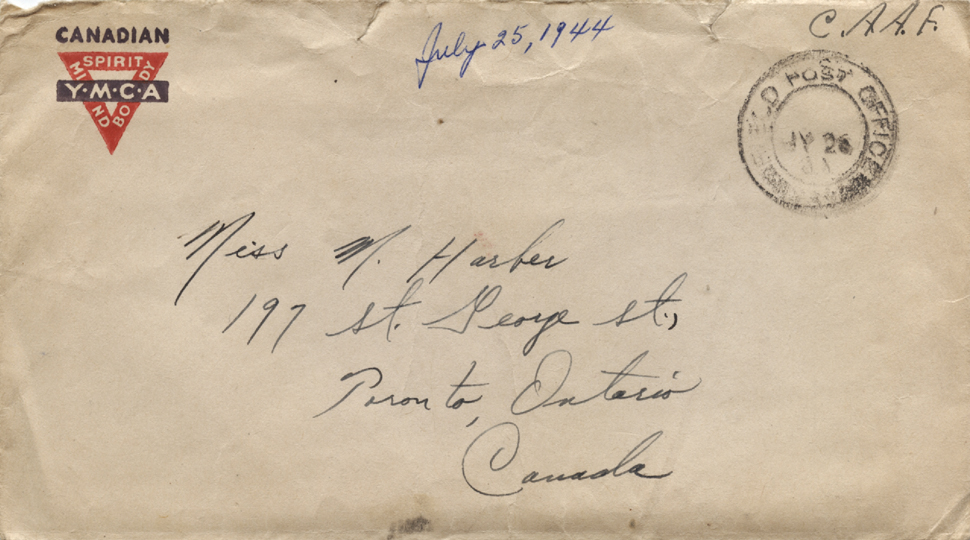 CANADIAN
SPIRIT
MIND
BODY
Y·M·C·A
July 25, 1944
C. A. A. F.
FIELD POST OFFICE
JY 26
Miss M. Harber
197 St. George St.,
Toronto, Ontario
Canada